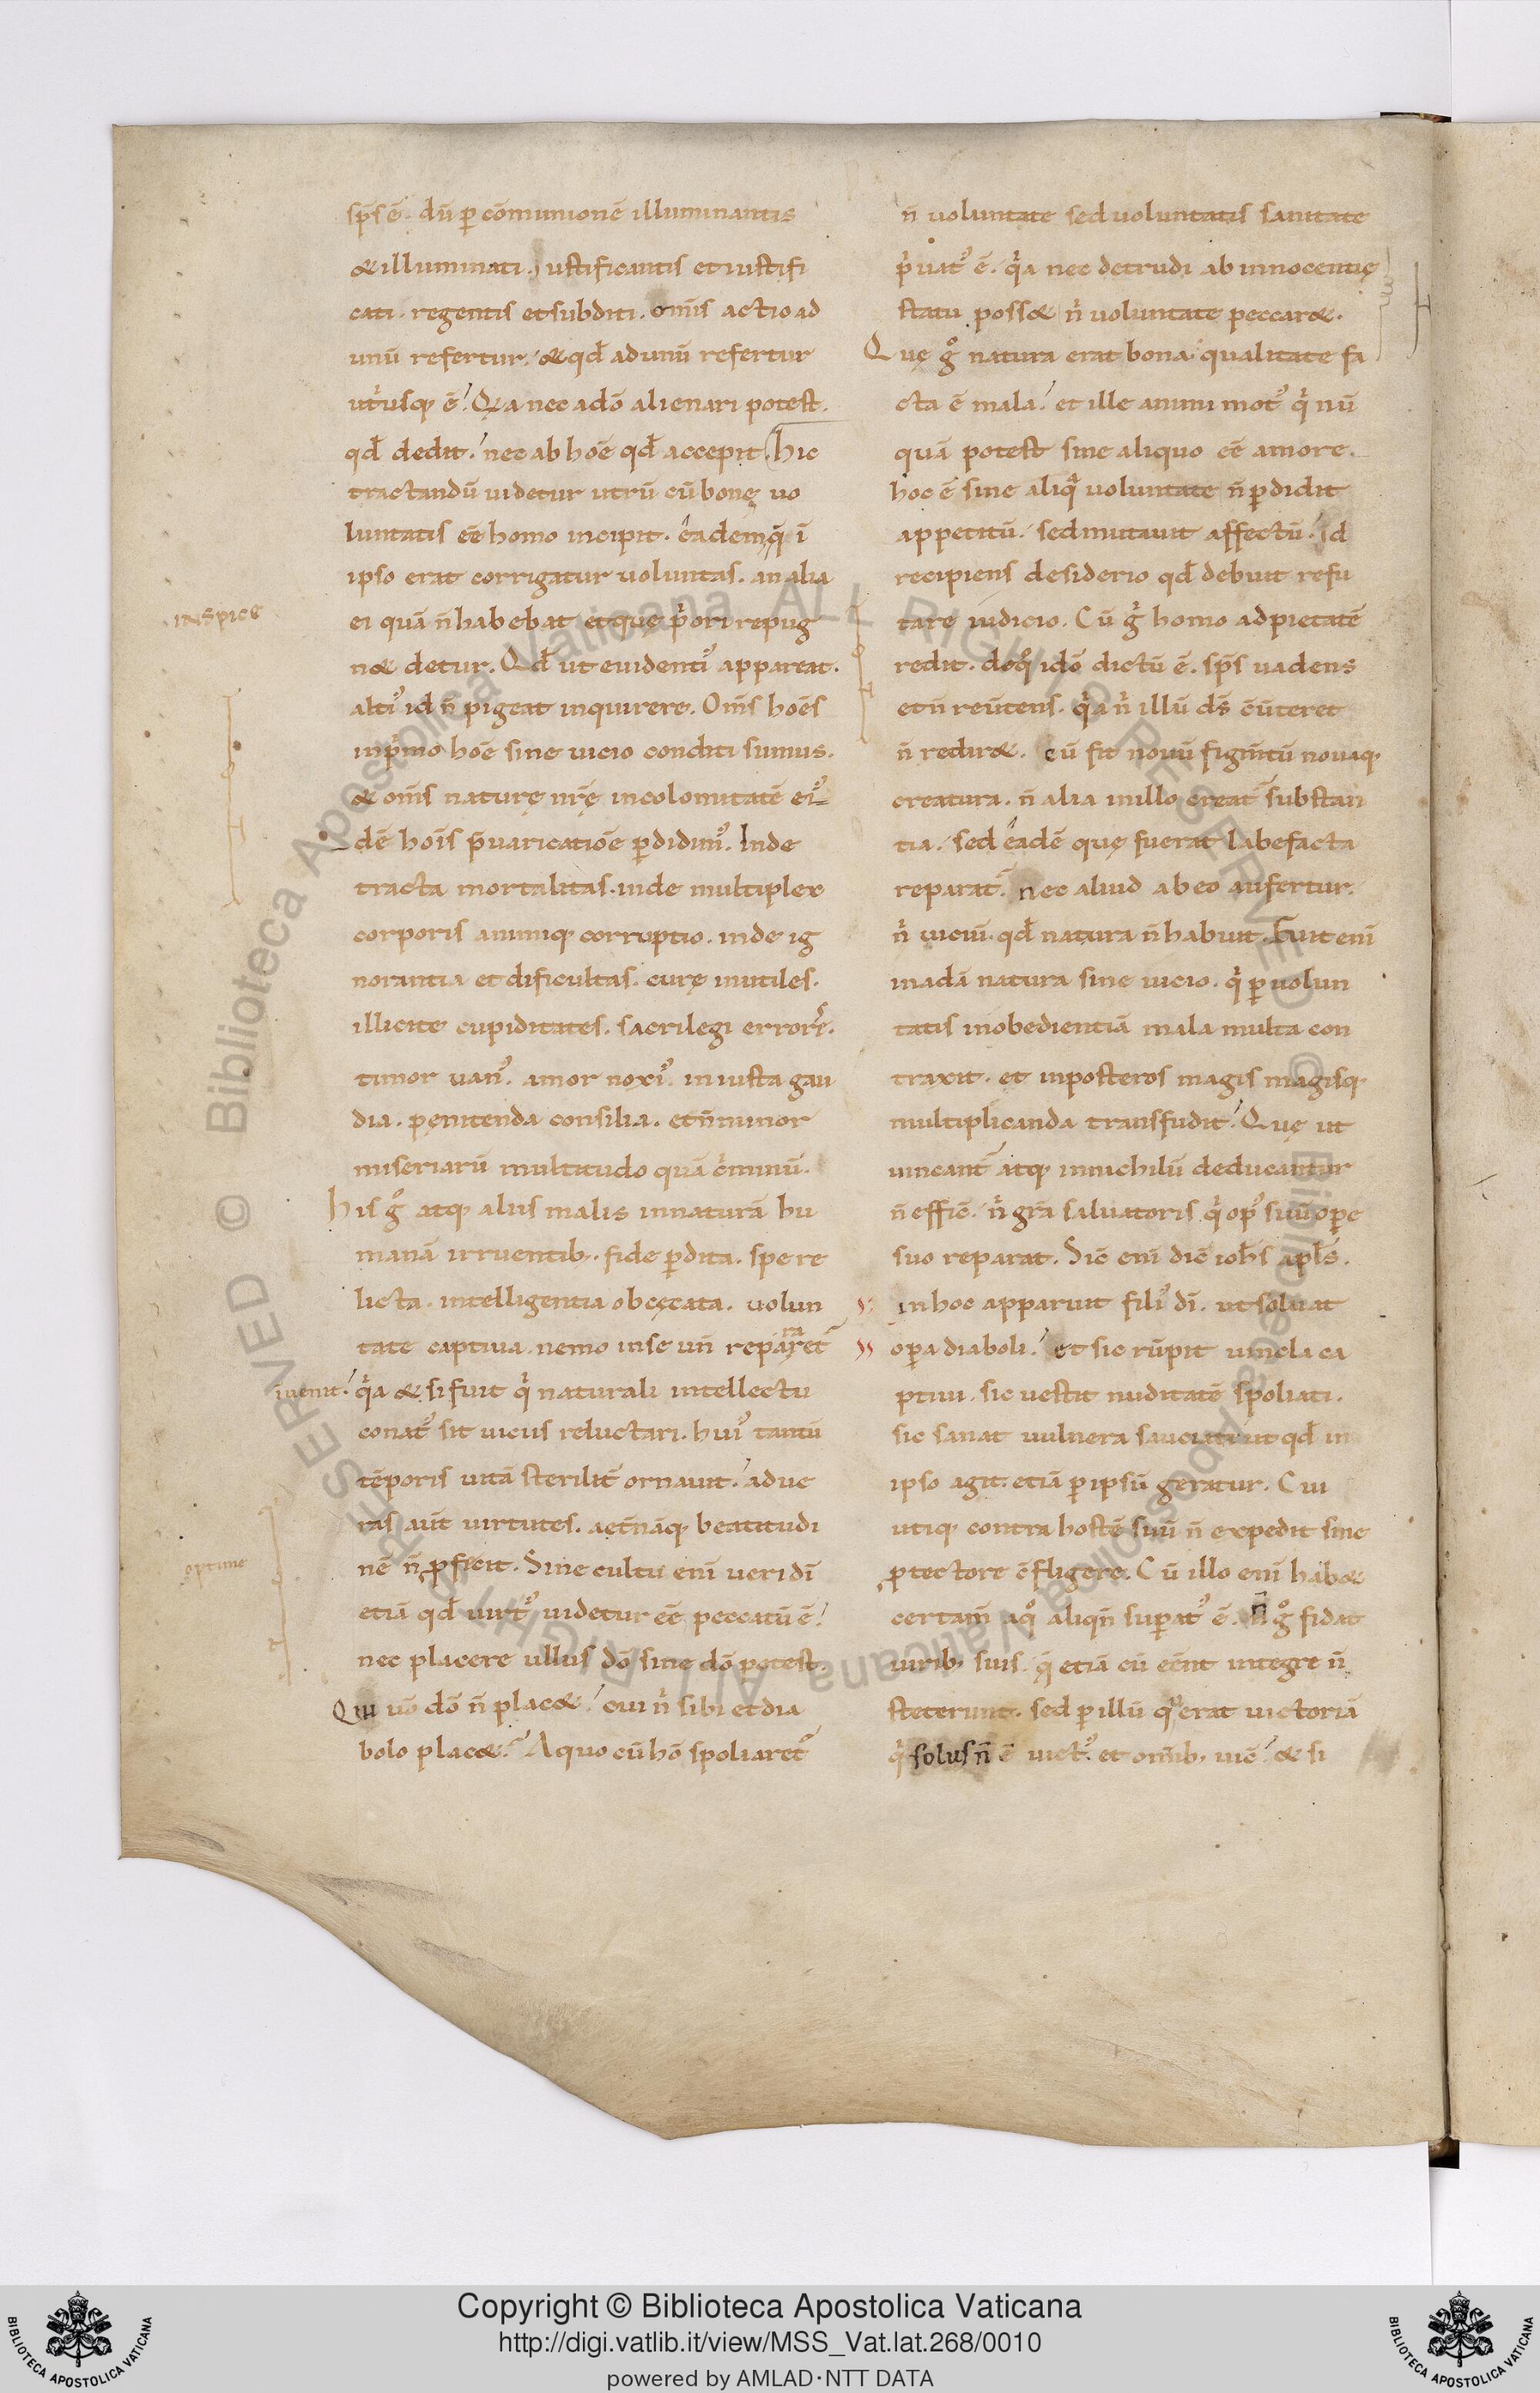 sp̄s ē. dū ꝑ cōmunionē illuminantis
& illuminati. iustificantis et iustifi
cati. regentis et subditi. om̄is actio ad
unū refertur. & qđ ad unū refertur
utrusq; ē. Quia nec a dō alienari potest.
qđ dedit. nec ab hōe qđ accepit. hic
tractandū uidetur utrū cū bonę uo
luntatis eē homo incipit. eademq; ī
ipso erat corrigatur uoluntas. an alia
ei quā n̄ habebat et que pⁱori repug
n& detur. Qđ ut euidentiꝰ appareat.
altiꝰ id n̄ pigeat inquirere. Om̄s hoēs
in pⁱmo hoē sine uicio conditi sumus.
& om̄s naturę nrę̄ incolomitatē eiꝰ
dē hoīs p̄uaricatiōe ꝑdidimꝰ. Inde
tracta mortalitas. inde multiplex
corporis animiq; corruptio. inde ig
norantia et dificultas. curę inutiles.
illicite cupiditates. sacrilegi errores.
timor uanꝰ. amor noxiꝰ. iniusta gau
dia. penitenda consilia. et n̄ minor
miseriarū multitudo quā cⁱminū.
His gͦ atq; aliis malis in naturā hu
manā irruentib;. fide ꝑdita. spe re
licta. intelligentia obcęcata. uolun
tate captiua. nemo in se un̄ reparet̄
ra
inuenit. qⁱa & si fuit qⁱ naturali intellectu
conatꝰ sit uiciis reluctari. huiꝰ tantū
tēporis uitā sterilit̄ ornauit. ad ue
ras aūt uirtutes. aet̄nāq; beatitudi
nē n̄ ꝓfecit. Sine cultu enī ueri dī
etiā qđ uirtꝰ uidetur eē peccatū ē.
nec placere ullus dō sine dō potest.
Qui uō dō n̄ plac&. cui nⁱ sibi et dia
bolo plac&. A quo cū hō spoliaret̄
INSPICE
optime
n̄ uoluntate sed uoluntatis sanitate
pⁱuatꝰ ē. qⁱa nec detrudi ab innocentię
statu poss& nⁱ uoluntate peccar&.
Quę gͦ natura erat bona. qualitate fa
cta ē mala. et ille animi motꝰ qⁱ nū
quā potest sine aliquo eē amore.
hoc ē sine aliqᵃ uoluntate n̄ ꝑdidit
appetitū. sed mutauit affectū. id
recipiens desiderio qđ debuit refu
tare iudicio. Cū gⁱ homo ad pietatē
redit. de qͦ idō dictū ē. sp̄s uadens
et n̄ reūtens. qⁱa nⁱ illū d̄s cūteret
n̄ redir&. cū fit nouū figm̄tū nouaq;
creatura. n̄ alia in illo creat̄ substan
tia. sed eadē quę fuerat labefacta
reparat̄. nec aliud ab eo aufertur.
nⁱ uiciū. qđ natura n̄ habuit. Fuit enī
in adā natura sine uicio. qⁱ ꝑ uolun
tatis inobedientiā mala multa con
traxit. et in posteros magis magisq;
multiplicanda transfudit. Quę ut
uincant̄ atq; in nichilū deducantur
n̄ efficē. nⁱ grā saluatoris qⁱ opꝰ suū ope
suo reparat. Sic enī dic̄ ioh̄s apl̄s.
in hoc apparuit filiꝰ dī. ut soluat
oꝑa diaboli. et sic rūpit uincla ca
ptiui. sic uestit nuditatē spoliati.
sic sanat uulnera sauciati ut qđ in
ipso agit. etiā ꝑ ipsū geratur. Cui
utiq; contra hostē suū n̄ expedit sine
ꝓtectore cfligere. Cū illo enī hab&
certam̄ a qͦ aliqn̄ suꝑatꝰ ē. N̄ gͦ fidat
uirib; suis. q; etiā cū eēnt integre n̄
steterunt. sed ꝑ illū qᵉrat uictoriā
qⁱ solus n̄ ē uictꝰ. et omīb; uic̄. & si
Copyright © Biblioteca Apostolica Vaticana
http://digi.vatlib.it/view/MSS_Vat.lat.268/0010
powered by AMLAD·NTT DATA
BIBLIOTECA APOSTOLICA VATICANA
BIBLIOTECA APOSTOLICA VATICANA